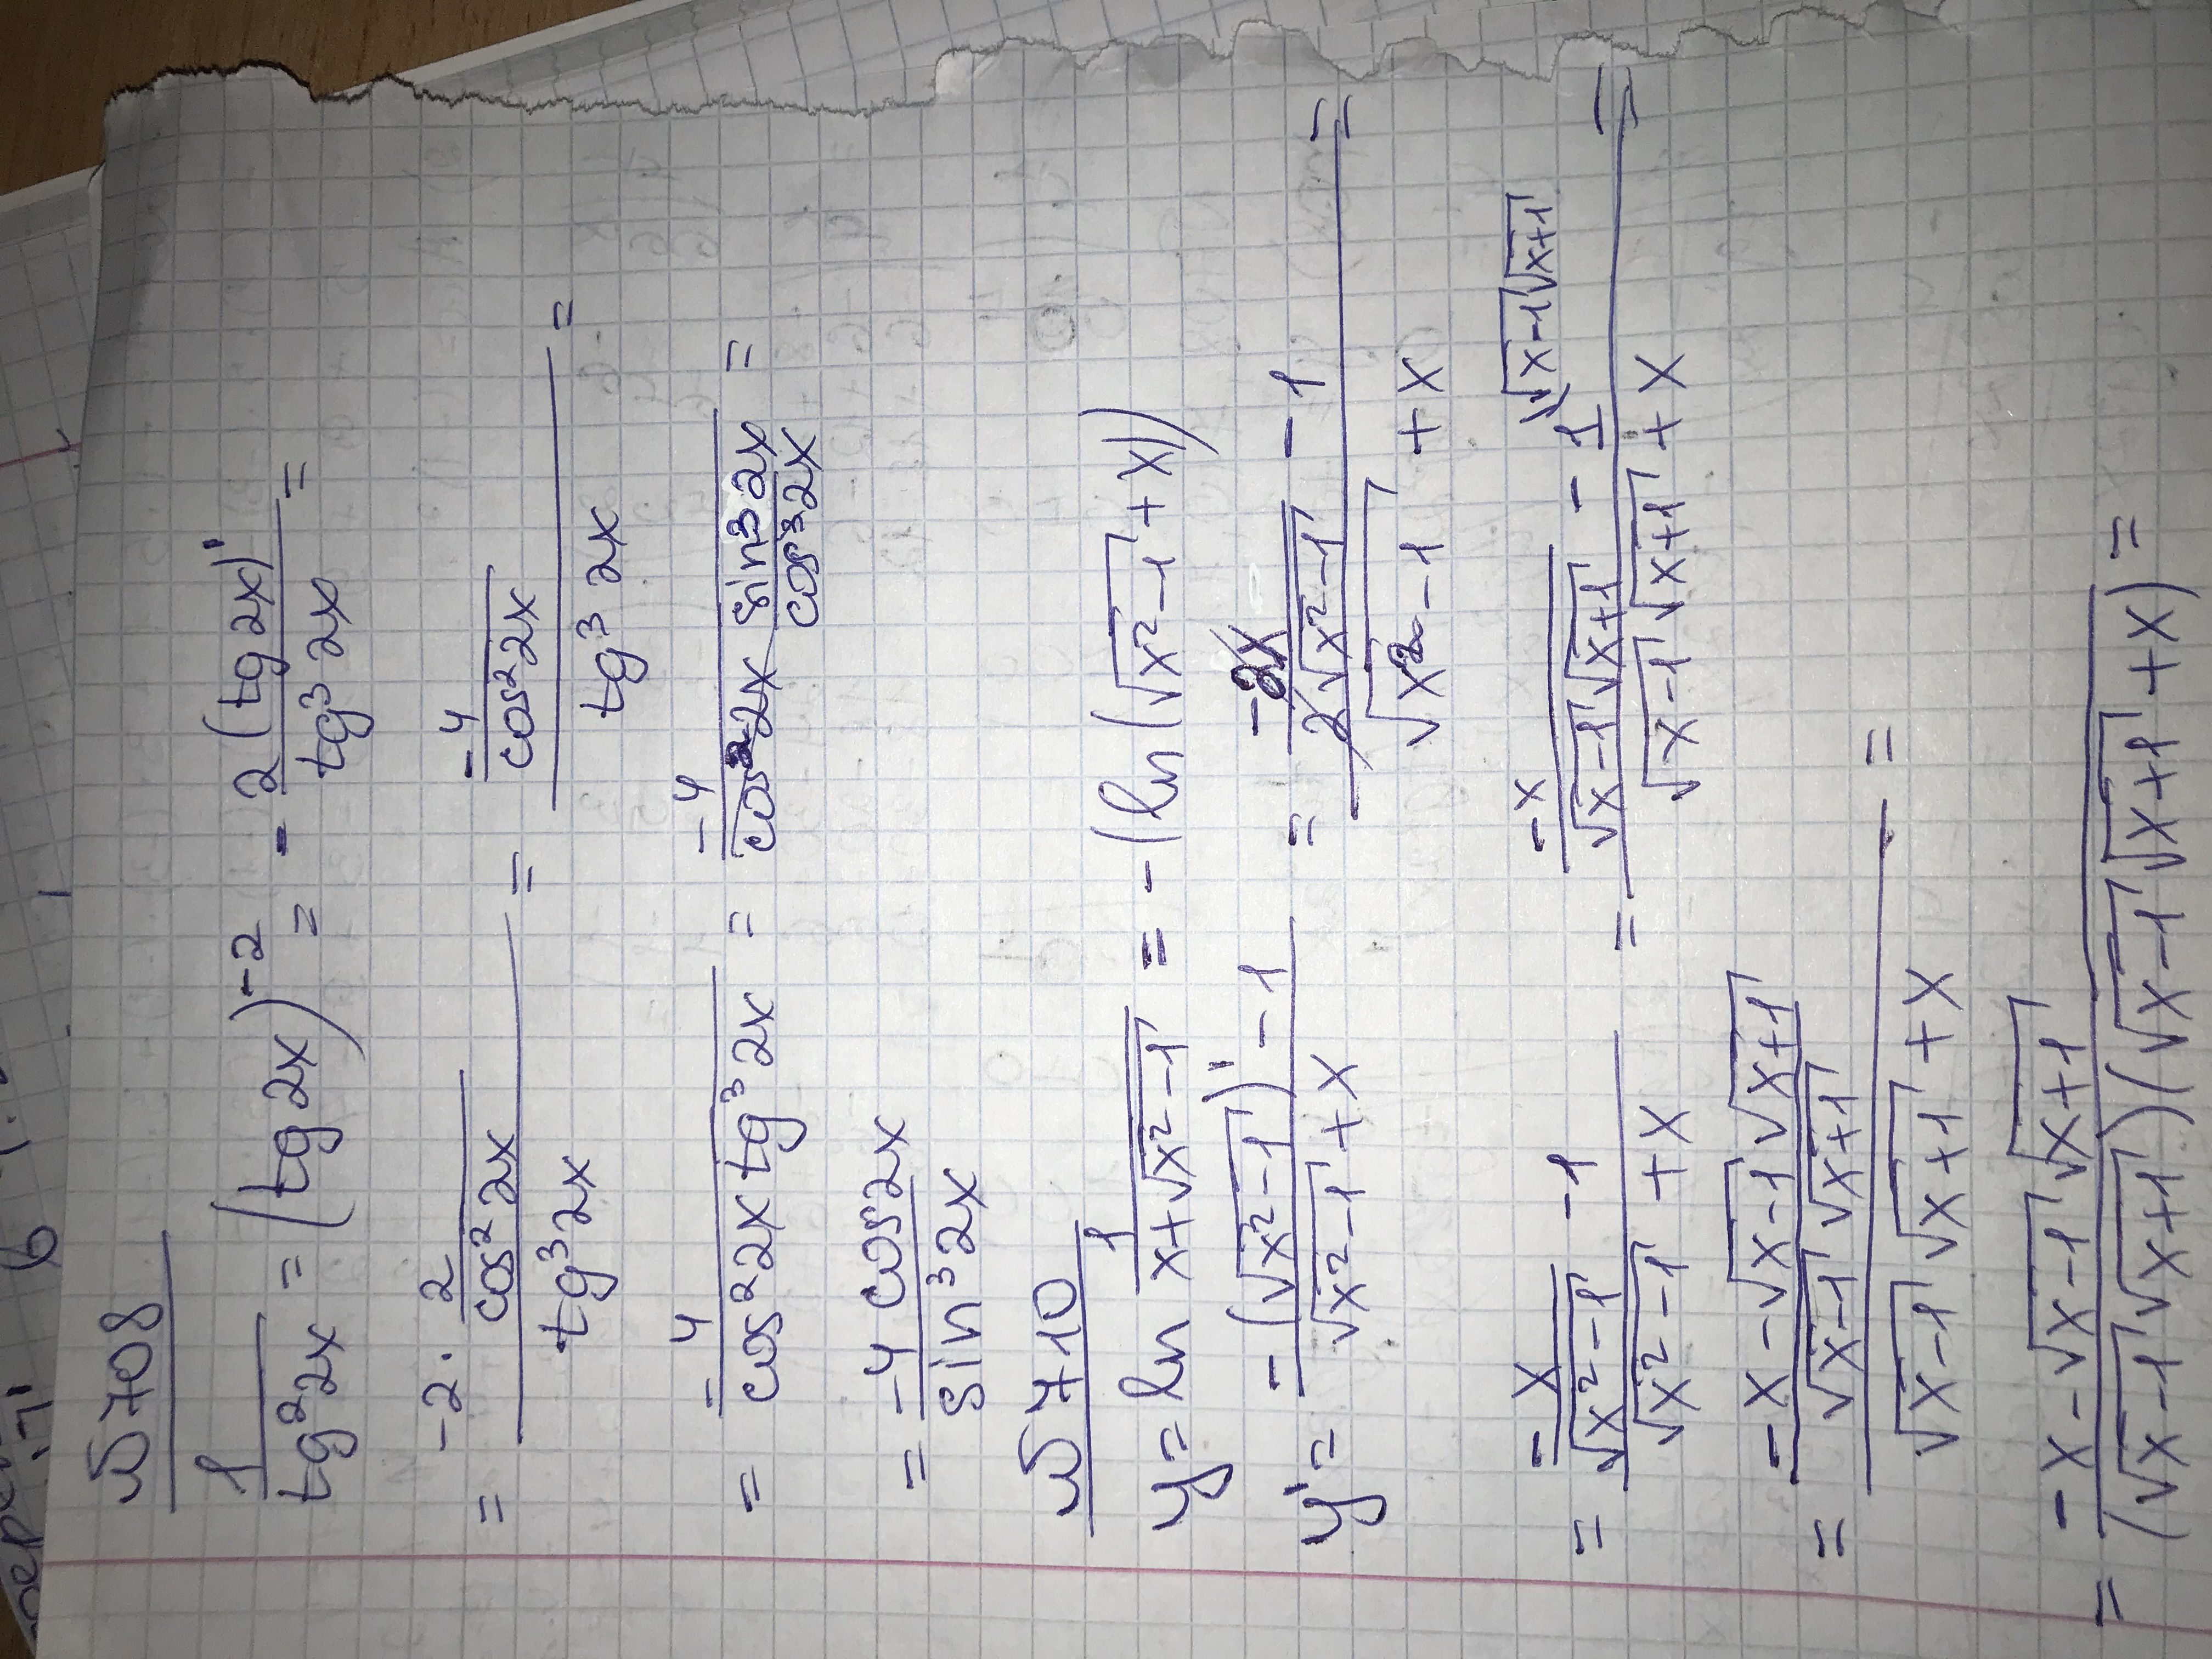 6
№708
1/tg²2x = (tg2x)⁻² = - 2(tg2x)'/tg³2x =
= (-2 · 2/cos²2x)/(tg³2x) = (-4/cos²2x)/(tg³2x) =
= -4/(cos²2x tg³2x) = -4/(cos²2x sin³2x/cos³2x) =
= -4cos2x/sin³2x
№710
y = ln 1/(x+√(x²-1)) = -(ln(√(x²-1)+x))
y' = (-(√(x²-1))' - 1)/(√(x²-1)+x) = (-2x/(2√(x²-1)) - 1)/(√(x²-1)+x) =
= (-x/√(x²-1) - 1)/(√(x²-1)+x) = (-x/(√(x-1)√(x+1)) - 1\√(x-1)√(x+1))/(√(x-1)√(x+1)+x) =
= ((-x-√(x-1)√(x+1))/(√(x-1)√(x+1)))/(√(x-1)√(x+1)+x) =
= (-x-√(x-1)√(x+1))/((√(x-1)√(x+1))(√(x-1)√(x+1)+x)) =